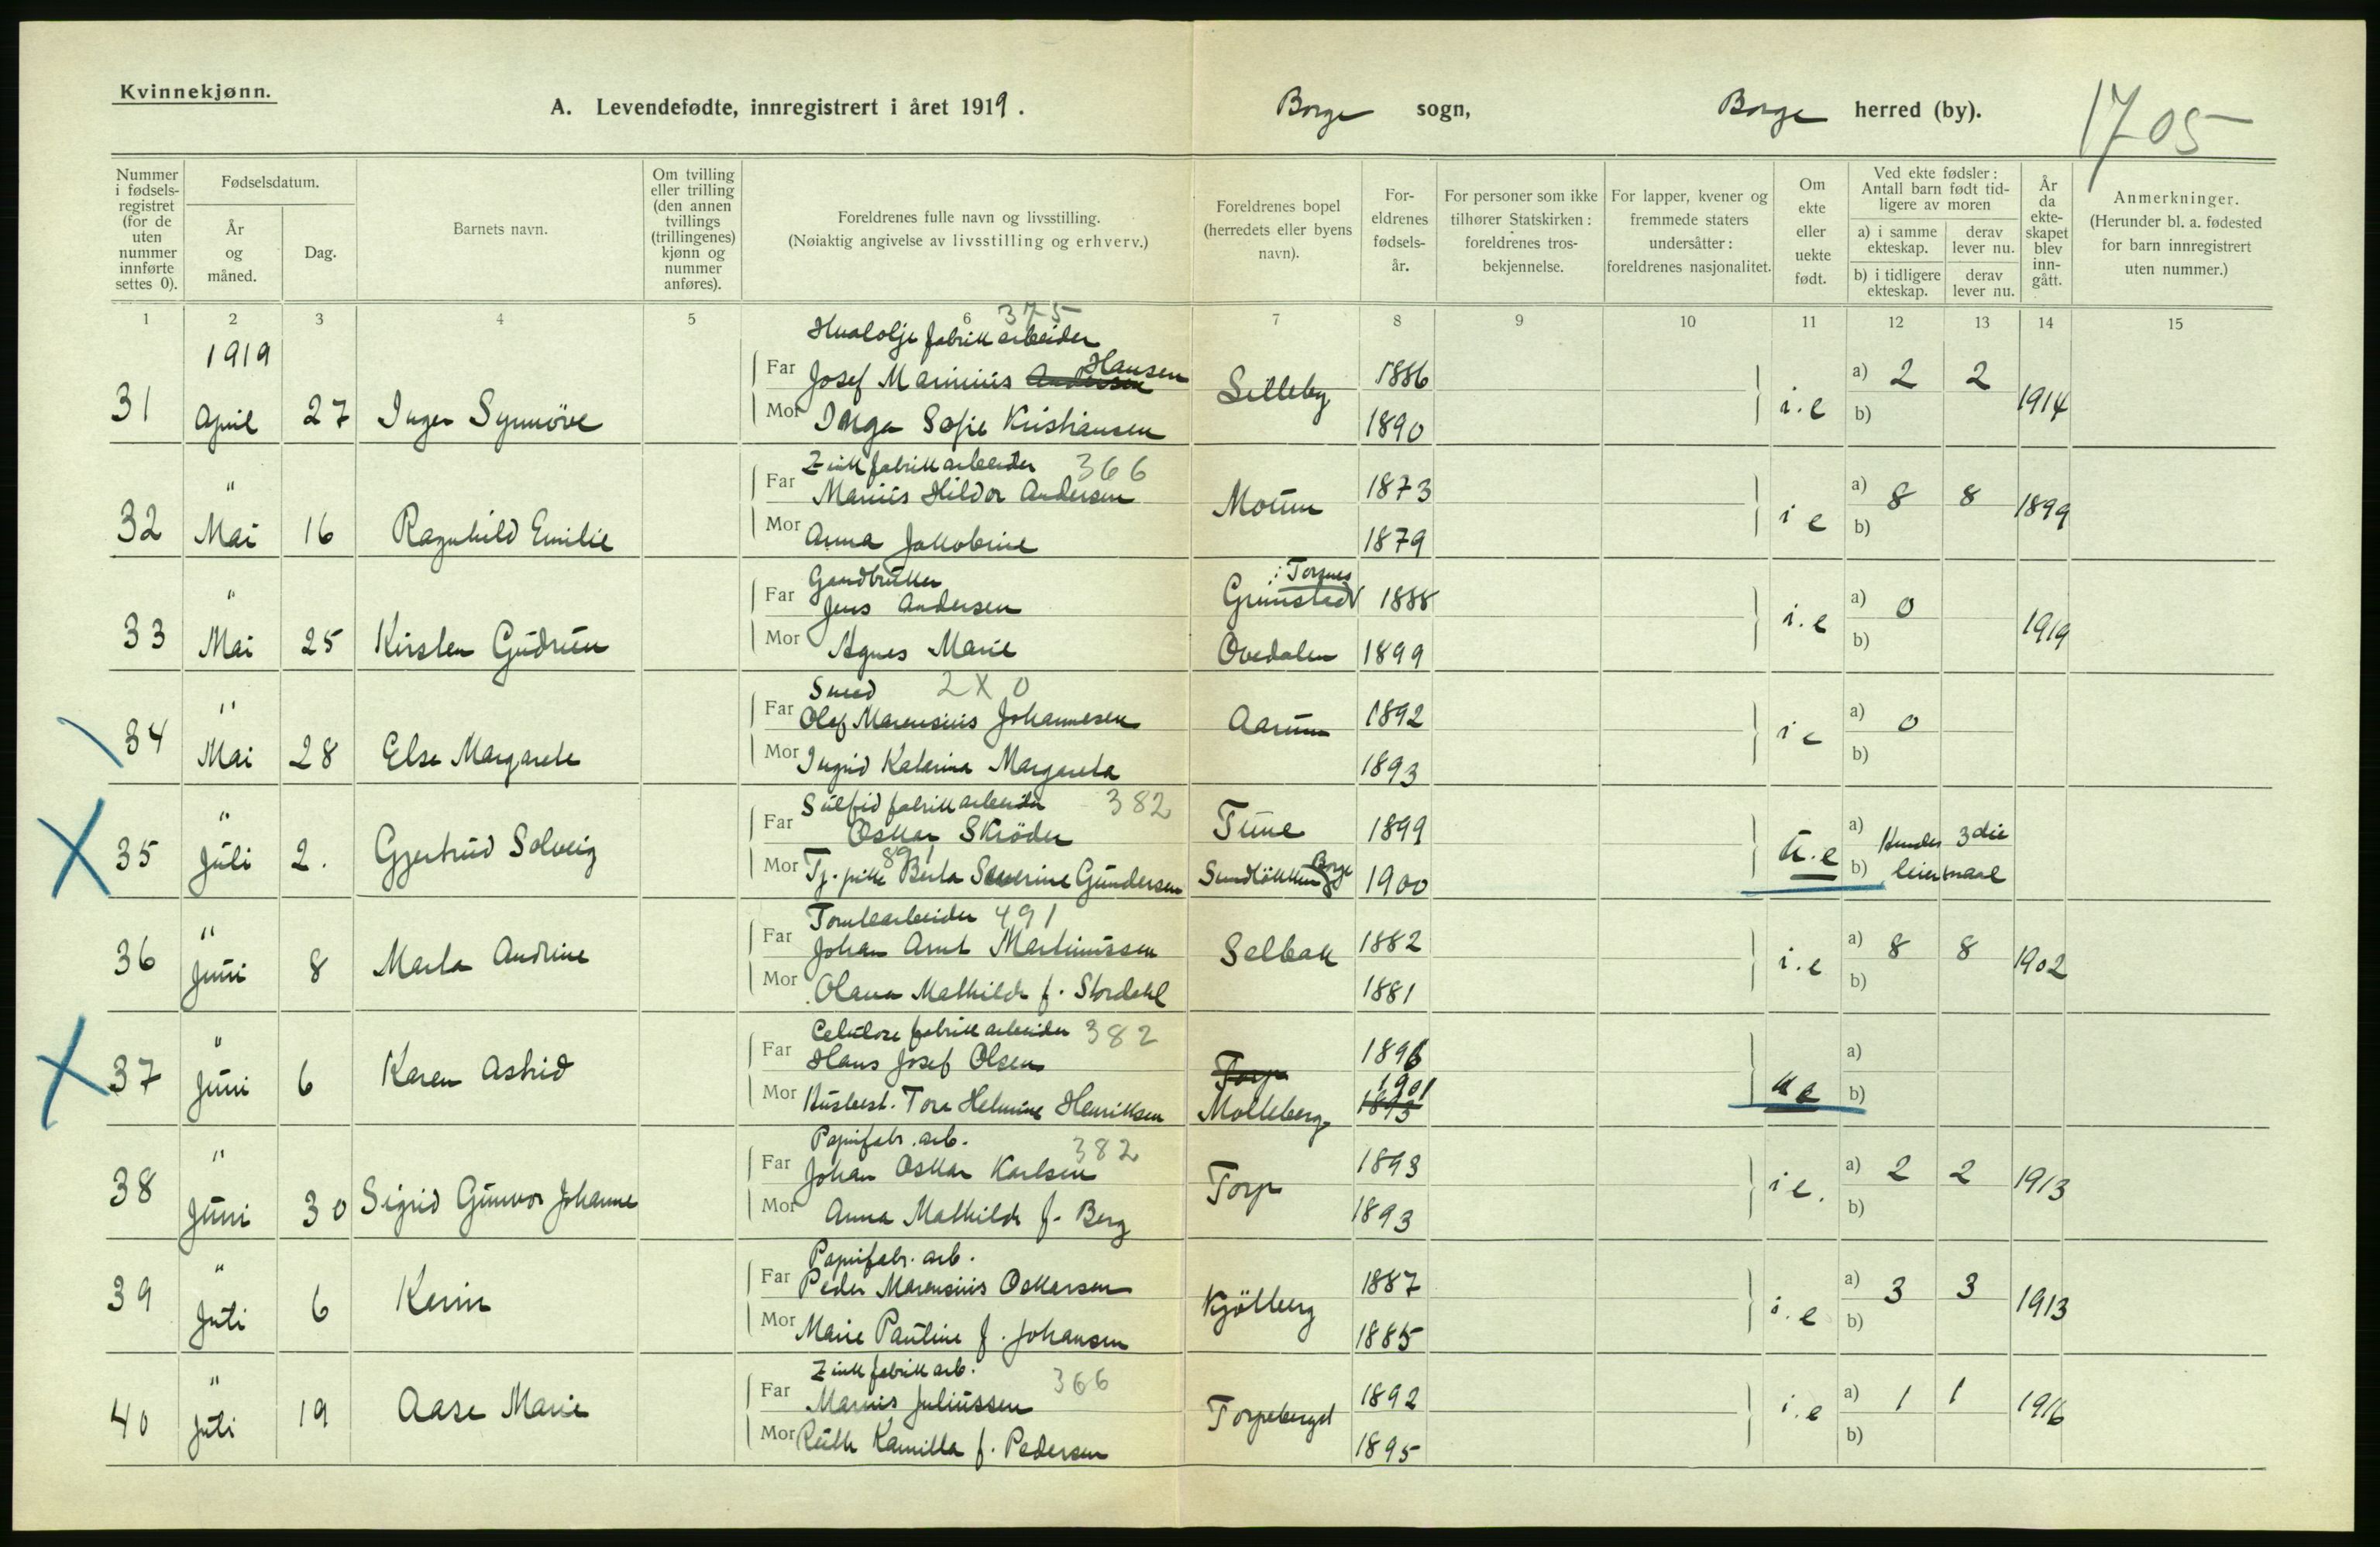 Kvinnekjønn.
A. Levendefødte, innregistrert i året 1919.
Borge sogn,
Borge herred (by).
1705
Nummer i fødsels-registret (for de uten nummer innførte settes 0).
Fødselsdatum.
År og måned.
Dag.
Barnets navn.
Om tvilling eller trilling (den annen tvillings (trillingenes) kjønn og nummer anføres).
Foreldrenes fulle navn og livsstilling.
(Nøiaktig angivelse av livsstilling og erhverv.)
Foreldrenes bopel (herredets eller byens navn).
For-eldrenes fødsels-år.
For personer som ikke tilhører Statskirken: foreldrenes tros-bekjennelse.
For lapper, kvener og fremmede staters undersåtter: foreldrenes nasjonalitet.
Om ekte eller uekte født.
Ved ekte fødsler: Antall barn født tid-ligere av moren
a) i samme ekteskap.
derav lever nu.
b) i tidligere ekteskap.
derav lever nu.
År da ekte-skapet blev inn-gått.
Anmerkninger.
(Herunder bl. a. fødested for barn innregistrert uten nummer.)
1 2 3 4 5 6 7 8 9 10 11 12 13 14 15
1919
375
Hvalolje fabrikk arbeider
31 April 27 Inger Synnöve
Far Josef Marinius Andersen Hansen Lilleby 1886
Mor Inga Sofie Kristiansen 1890
i.e a) 2 2 b) 1914
Zinkfabrikkarbeider 366
32 " Mai 16 Ragnhild Emilie
Far Marius Hildor Andersen Moum 1873
Mor Anna Jakobine 1879
i e a) 8 8 b) 1899
Gaardbruker
33 " Mai 25 Kirsten Gudrun
Far Jens Andersen Grimstad i Torsnes 1888
Mor Agnes Marie Ovedalen 1899
i.e a) 0 b) 1919
Smed 2 X 0
34 " Mai 28 Else Margarete
Far Olaf Marensius Johannesen Aarum 1892
Mor Ingrid Katarina Margareta 1893
i e a) 0 b)
Sulfid fabrikk arbeider 382
35 " Juli 2. Gjertrud Solveig
Far Oskar Skröder Tune 1899
891
Mor Tj. pike Berta Severine Gundersen Sundlökken Borge 1900
u.e a) Hendes 3die b) leiermaal
Tomtearbeider 491
36 " Juni 8 Marta Andrine
Far Johan Arnt Martinussen Selbak 1882
Mor Olava Mathilde f. Stordahl 1881
i.e a) 8 8 b) 1902
Celulose fabrikk arbeider 382
37 " Juni 6 Karen Astrid
Far Hans Josef Olsen Torp 1896
Mor Husbest. Tora Helmine Henriksen Molleberg 1893 1901
u e a) b)
Papirfabr. arb. 382
38 " Juni 30 Sigrid Gunvor Johanne
Far Johan Oskar Karlsen Torp 1893
Mor Anna Mathilde f. Berg 1893
i e. a) 2 2 b) 1913
Papirfabr. arb.
39 " Juli 6 Karin
Far Peder Marensius Oskarsen Kjölberg 1887
Mor Marie Pauline f. Johansen 1885
i.e a) 3 3 b) 1913
Zinkfabrikk arb. 366
40 " Juli 19 Aase Marie
Far Marius Juliussen Torpeberget 1892
Mor Ruth Kamilla f. Pedersen 1895
i.e a) 1 1 b) 1916